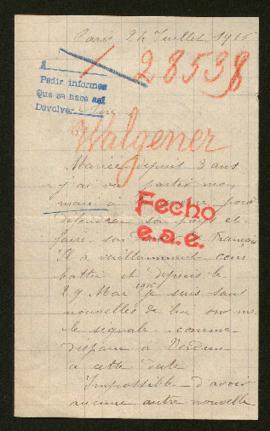 Paris 24 Juillet 1916
1 28538
A
Pedir informes
Que se hace así
Devolver
Sire
Walgener
Mariée depuis 3 ans
j'ai vu partir mon
mari à pour
défendre son pays et
faire son Français
Il a vaillamment com
battu et depuis le
29 Mai 1916 je suis sans
nouvelles de lui on me
le signale comme
disparu à Verdun
à cette date
Impossible d'avoir
aucune autre nouvelle
Fecho
e.a.e.